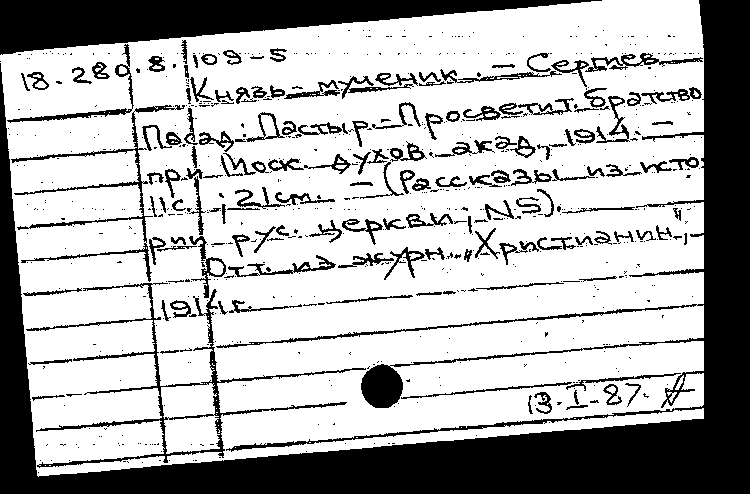 18.280.8.109-5
Князь-мученик. - Сергиев
Пасад: Пастыр.-Просветит. братство
при Моск. духов. акад., 1914. -
11с.; 21см. - (Рассказы из исто-
рии рус. церкви; N.5).
Отт. из журн. "Христианин",
1914г.
13.I-87.